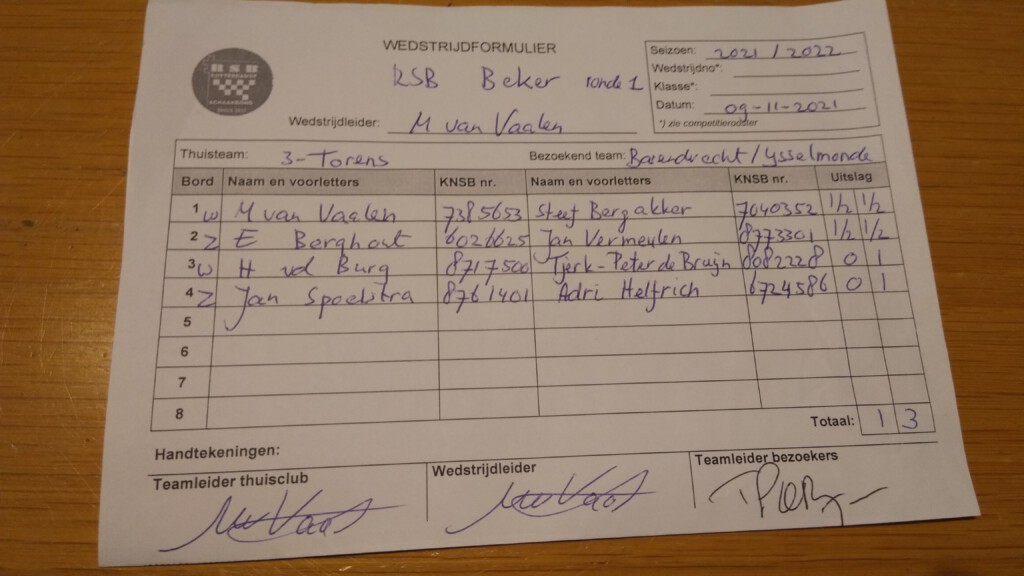 WEDSTRIJDFORMULIER
RSB Beker ronde 1
Wedstrijdleider: M van Vaalen
Seizoen: 2021 / 2022
Wedstrijdno*:
Klasse*:
Datum: 09-11-2021
*) zie competitierooster
RSB
Thuisteam: 3-Torens Bezoekend team: Barendrecht/Ysselmonde
Bord Naam en voorletters KNSB nr. Naam en voorletters KNSB nr. Uitslag
1 w M van Vaalen 7385653 Stef Bergakker 7040352 1/2 1/2
2 Z E Berghout 6026625 Jan Vermeulen 8773301 1/2 1/2
3 w H vd Burg 8717500 Tjerk-Peter de Bruijn 8082228 0 1
4 Z Jan Spoelstra 8761401 Adri Helfrich 6724586 0 1
5
6
7
8
Totaal: 1 3
Handtekeningen:
Teamleider thuisclub Wedstrijdleider Teamleider bezoekers